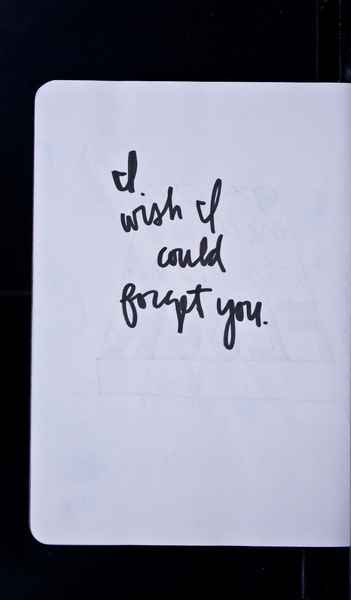 I
wish I
could
forget you.